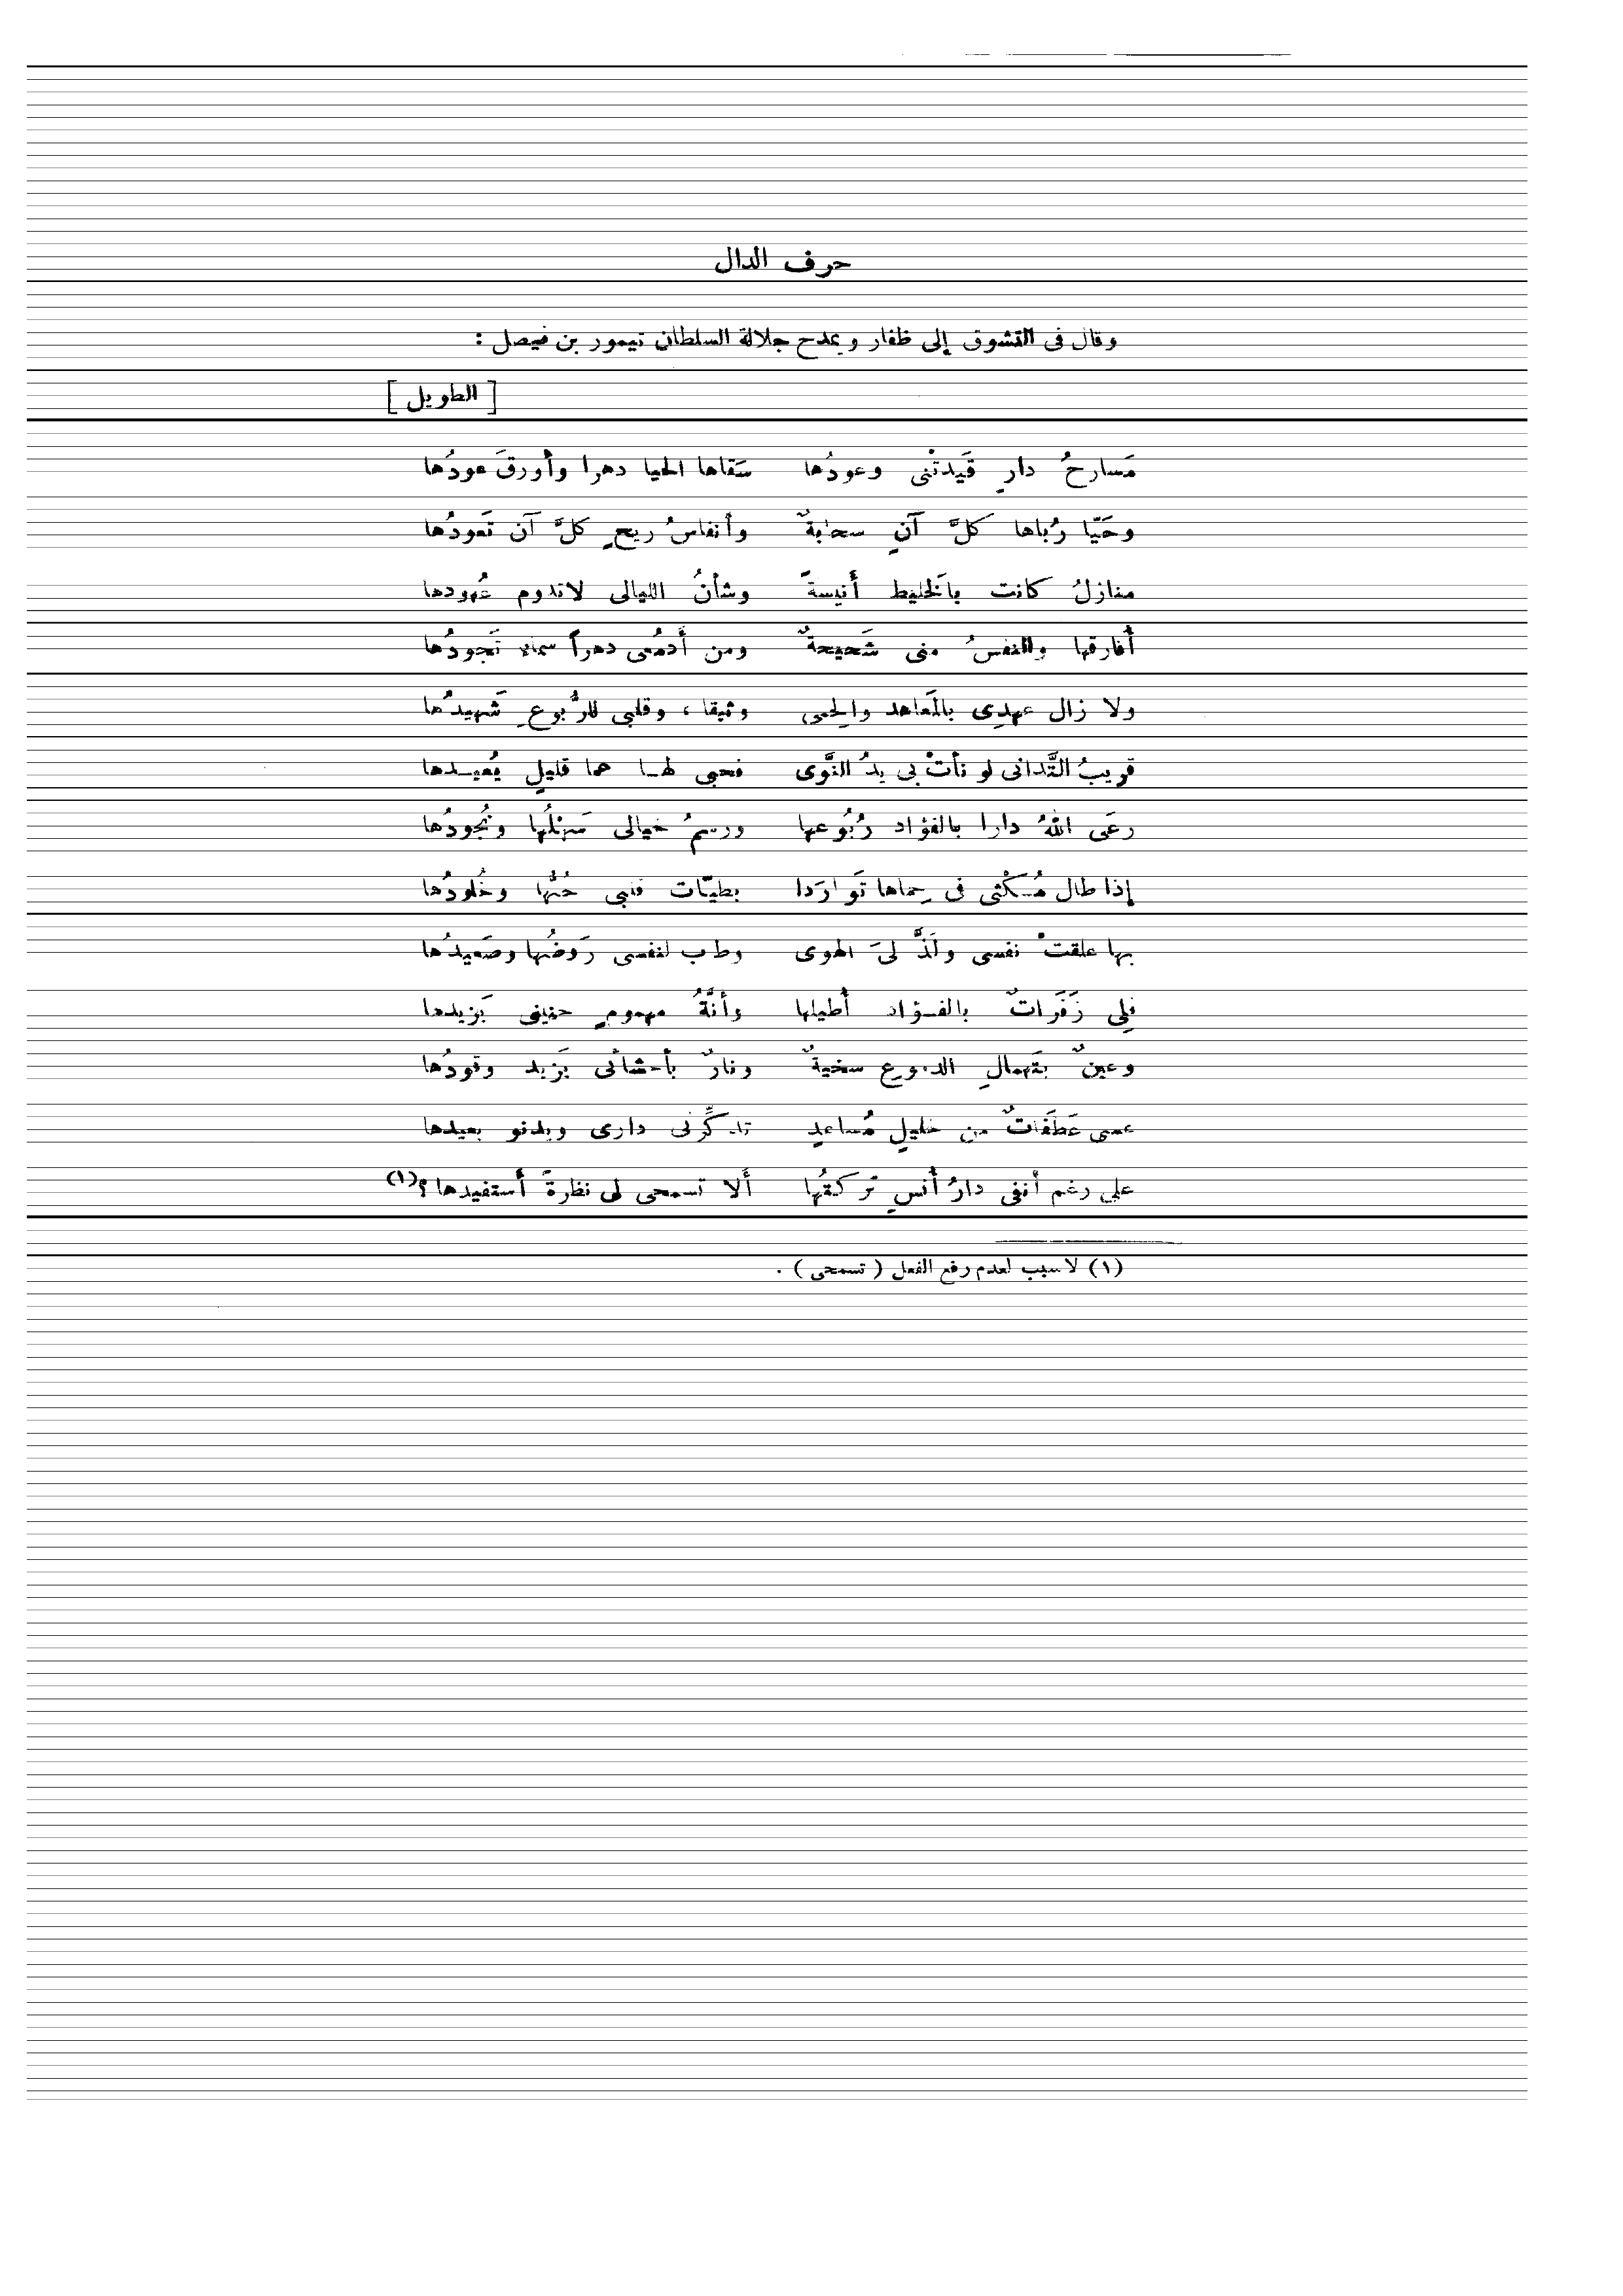 حرف الدال
وقال فى التشوق إلى ظفار ويمدح جلالة السلطان تيمور بن فيصل :
[ الطويل ]
مَسارحُ دارٍ قَيدتْنى وعودُها سَقاها الحيا دهرا وأورقَ عودُها
وحَيّا رُباها كلَّ آنٍ سحابةٌ وأنفاسُ ريحٍ كلَّ آن تَعودُها
منازلُ كانت بالخَليط أَنيسةً وشأنُ الليالى لاتدوم عُهودها
أُفارقها والنفسُ منى شَحيحةٌ ومن أَدمُعى دهراً سماء تَجودُها
ولا زال عهدِى بالمَعاهد والحِمى وثيقا ، وقلبى للرُّبوعِ شَهيدُها
قريبُ التَّدانى لو نأتْ بى يدُ النَّوى فحبى لهـا عما قليلٍ يُعيـدها
رعَى اللهُ دارا بالفؤاد رُبُوعها ورسمُ خيالى سَهْلُها ونُجودُها
إذا طال مُـكْثى فى حِماها تَواردَا بطيّات قلبى حُبُّها وخُلودُها
بها علقتْ نفسى ولَذَّ لىَ الهوى وطاب لنفسى رَوضُها وصَعيدُها
فلِى زَفَراتٌ بالفـؤاد أُطيلها وأنَّةُ مهمومٍ حنينى يَزيدها
وعينٌ بتَهمالِ الدموعِ سخيةٌ ونارٌ بأحشائى يَزيد وقودُها
عسى عَطَفاتٌ من خليلٍ مُساعدٍ تذكِّرنى دارى ويدنو بعيدها
على رغم أنفى دارُ أُنسٍ تركتُها أَلا تسمحى لى نظرةً أستفيدها ؟(١)
(١) لاسبب لعدم رفع الفعل ( تسمحى ) .